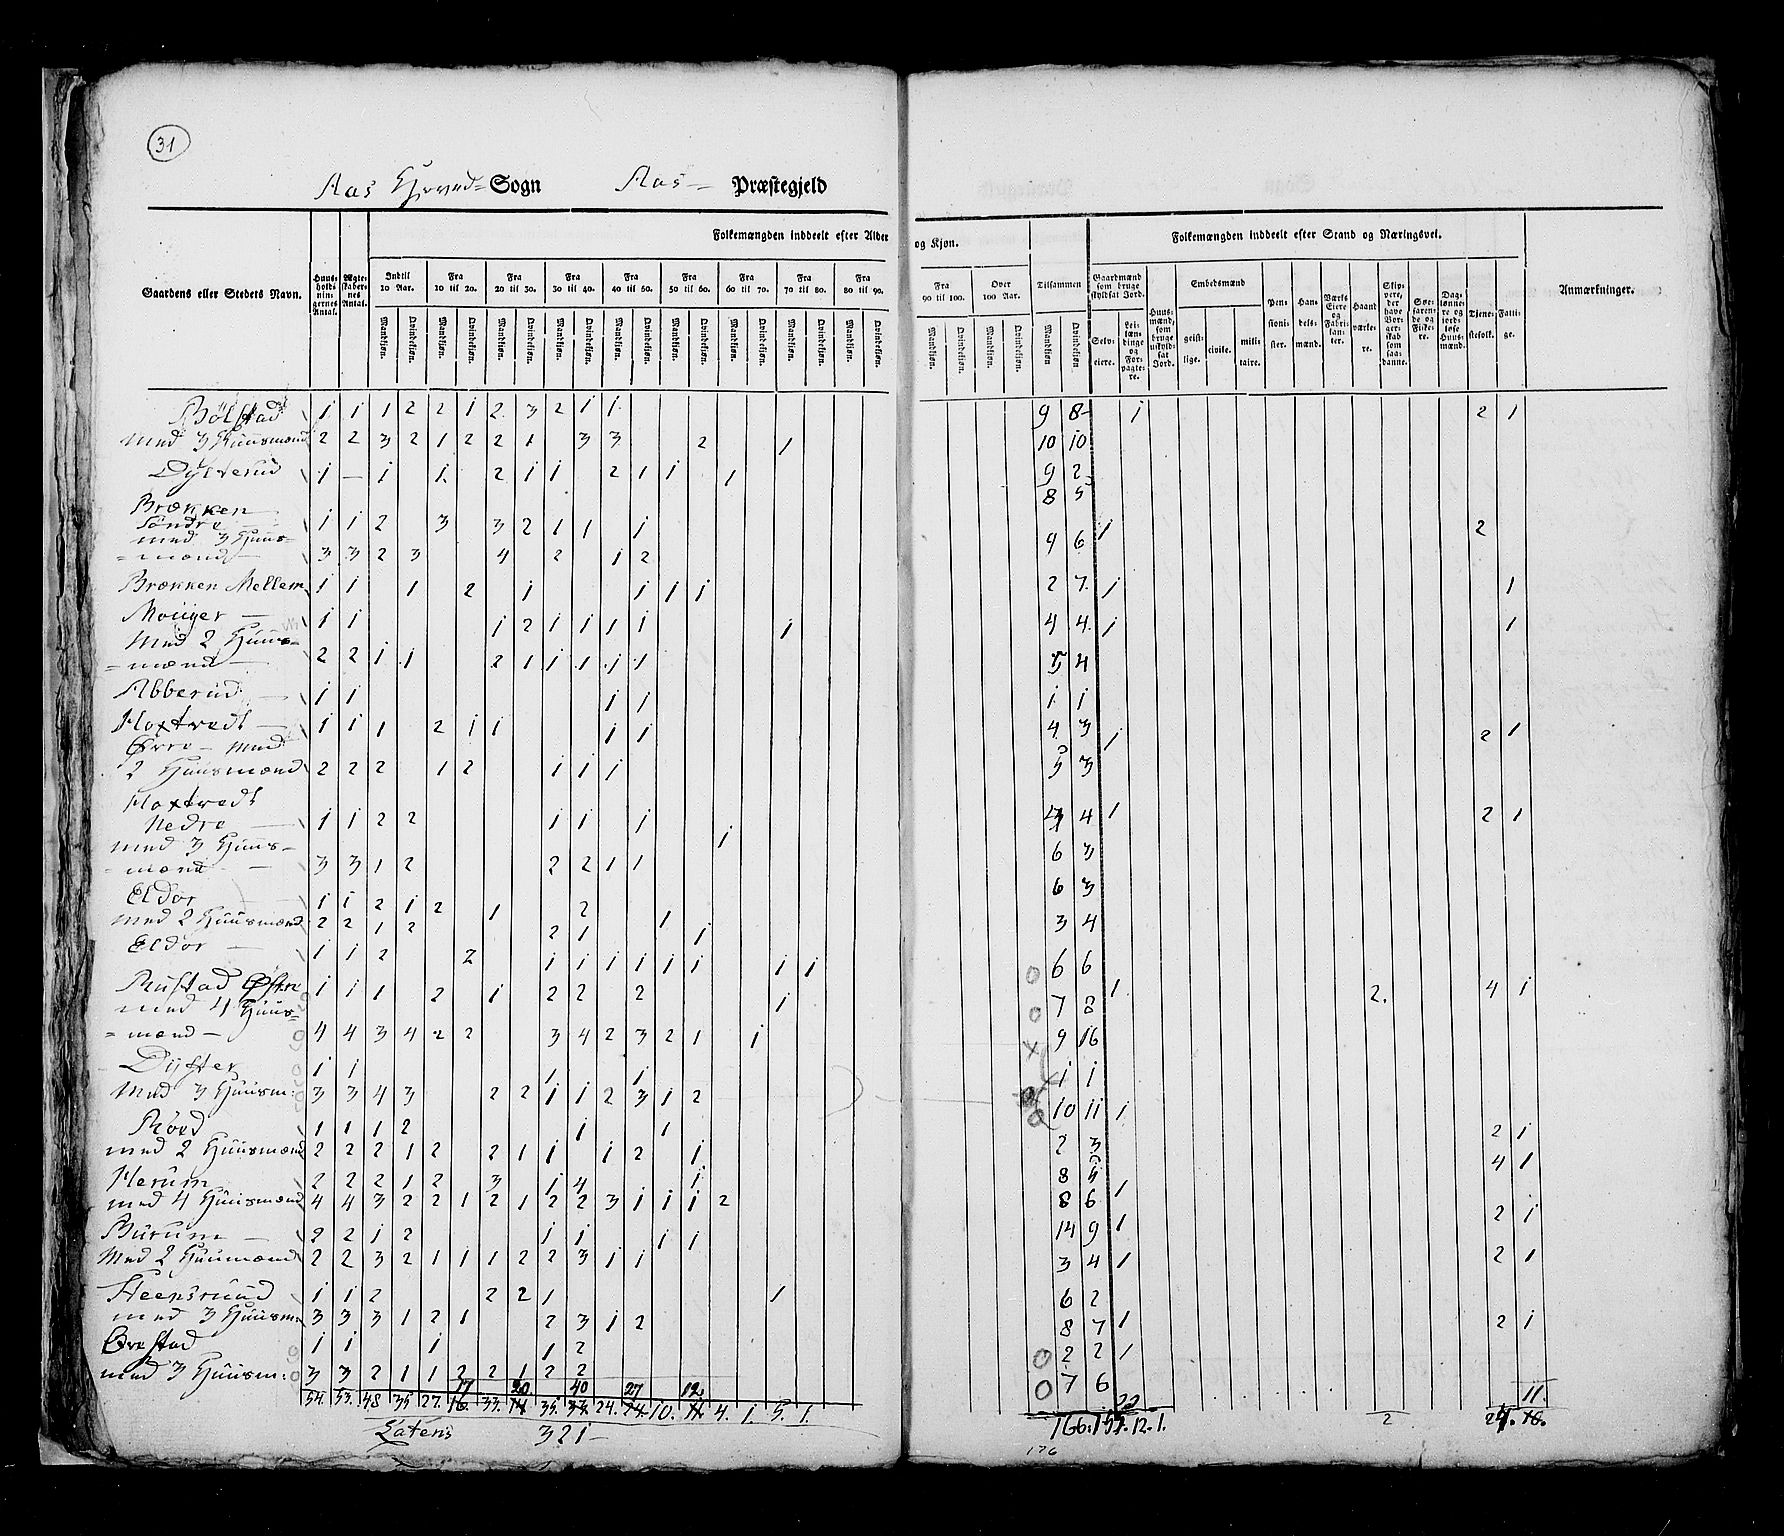 31
Aas Hoved= Sogn Aas — Præstegjeld
Gaardens eller Stedets Navn.
Huusholdningernes Antal.
Ægteskabernes Antal.
Folkemængden inddeelt efter Alder og Kjøn.
Indtil 10 Aar.
Fra 10 til 20.
Fra 20 til 30.
Fra 30 til 40.
Fra 40 til 50.
Fra 50 til 60.
Fra 60 til 70.
Fra 70 til 80.
Fra 80 til 90.
Fra 90 til 100.
Over 100 Aar.
Tilsammen
Mandkjøn. Qvindekjøn.
Folkemængden inddeelt efter Stand og Næringsvei.
Gaardmænd som bruge skyldsat Jord.
Selveiere.
Leilændinge og Forpagtere.
Huusmænd, som bruge uskyldsat Jord.
Embedsmænd
geistlige. civile. militaire.
Pensionister.
Handelsmænd.
Værks Eiere og Fabrikanter.
Haandværkere.
Skippere, der have Borgerskab som saadanne.
Søefarende og Fiskere.
Daglønnere og jordløse Huusmænd.
Tjenestefolk.
Fattige.
Anmærkninger.
Bölstad 1 1 1 2 2 1 2 3 2 1 1 9 8 1 2 1
med 3 Huusmænd 2 2 3 2 1 2 2 1 3 3 2 1 10 10
Dysterud 1 — 1 1 2 1 1 2 1 1 1 9 2
8 5
Brækken
Söndre 1 1 2 3 3 2 1 1 1 1 2
med 3 Huus=
=mænd 3 3 2 3 4 2 1 2 9 6
Brækken Mellem 1 1 1 2 1 1 1 1 2 7 1 1
Mouger — 1 1 1 2 1 1 1 1 1 4 4 1 1
Med 2 Huus=
=mænd — 2 2 1 1 2 1 1 1 1 1 5 4
Abberud — 1 1 1 1 1 1
Hoxtvedt — 1 1 1 2 1 1 1 1 4 3
Övre — med 1 2 1
2 Huusmænd 2 2 2 1 2 1 1 1 5 3
Hoxtvedt
Nedre — 1 1 2 2 1 1 1 1 4 4 1 2 1
med 3 Huus=
=mænd 3 3 1 2 2 2 1 1 6 3
Eldor 1 1 2 1 2 1 2 1 6 3
med 2 Huusmænd 2 2 1 2 2 1 1 3 4
Eldor — 1 1 2 2 1 1 1 1 1 1 1 1 6 6
Rustad Östre 1 1 1 2 1 2 2 2 1 7 8 1 2. 4 1
med 4 Huus=
=mænd — 4 4 3 4 2 2 3 4 2 3 2 1 1 9 16
Dyster 1 1 1 1 1 1
Med 3 Huusm: 3 3 4 3 2 2 1 1 2 3 1 2 10 11 1
Röed 1 1 1 2 1 1 2 3 2 1
med 2 Huusmænd 2 2 2 1 2 2 1 1 1 2 1 8 5 4 1
Herum 2 2 2 1 2 3 1 4 1 8 6 1
med 4 Huusmænd 4 4 3 2 2 1 2 1 2 2 3 1 1 1 2 14 9 1 2 1
Burum — 2 2 1 2 1 1 1 1 3 4 1 2 1
Med 2 Huusmænd 2 2 3 2 1 1 1 2 2 3 1 1
Steensruud 1 1 2 2 2 1 1 6 2
med 3 Huusm: 3 3 3 1 2 1 2 3 1 2 8 7 1 2 1
Örestad 1 1 1 1 2 2 2 1
med 3 Huusm: 3 3 2 1 1 2 2 1 2 2 7 6
17 20. 40 27 12. 11.
54. 53. 48 35 27. 16. 33. 35. 24. 24. 10. 4. 1. 5. 1. 166. 12. 1. 2 10.
Latens 321 —
176